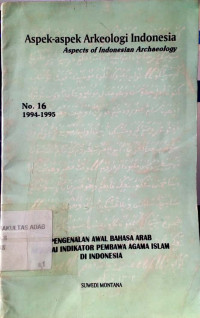 Aspek-aspek Arkeologi Indonesia
Aspects of Indonesian Archaeology
No. 16
1994-1995
FAKULTAS ADAB
PENGENALAN AWAL BAHASA ARAB
AI INDIKATOR PEMBAWA AGAMA ISLAM
DI INDONESIA
SUWEDI MONTANA